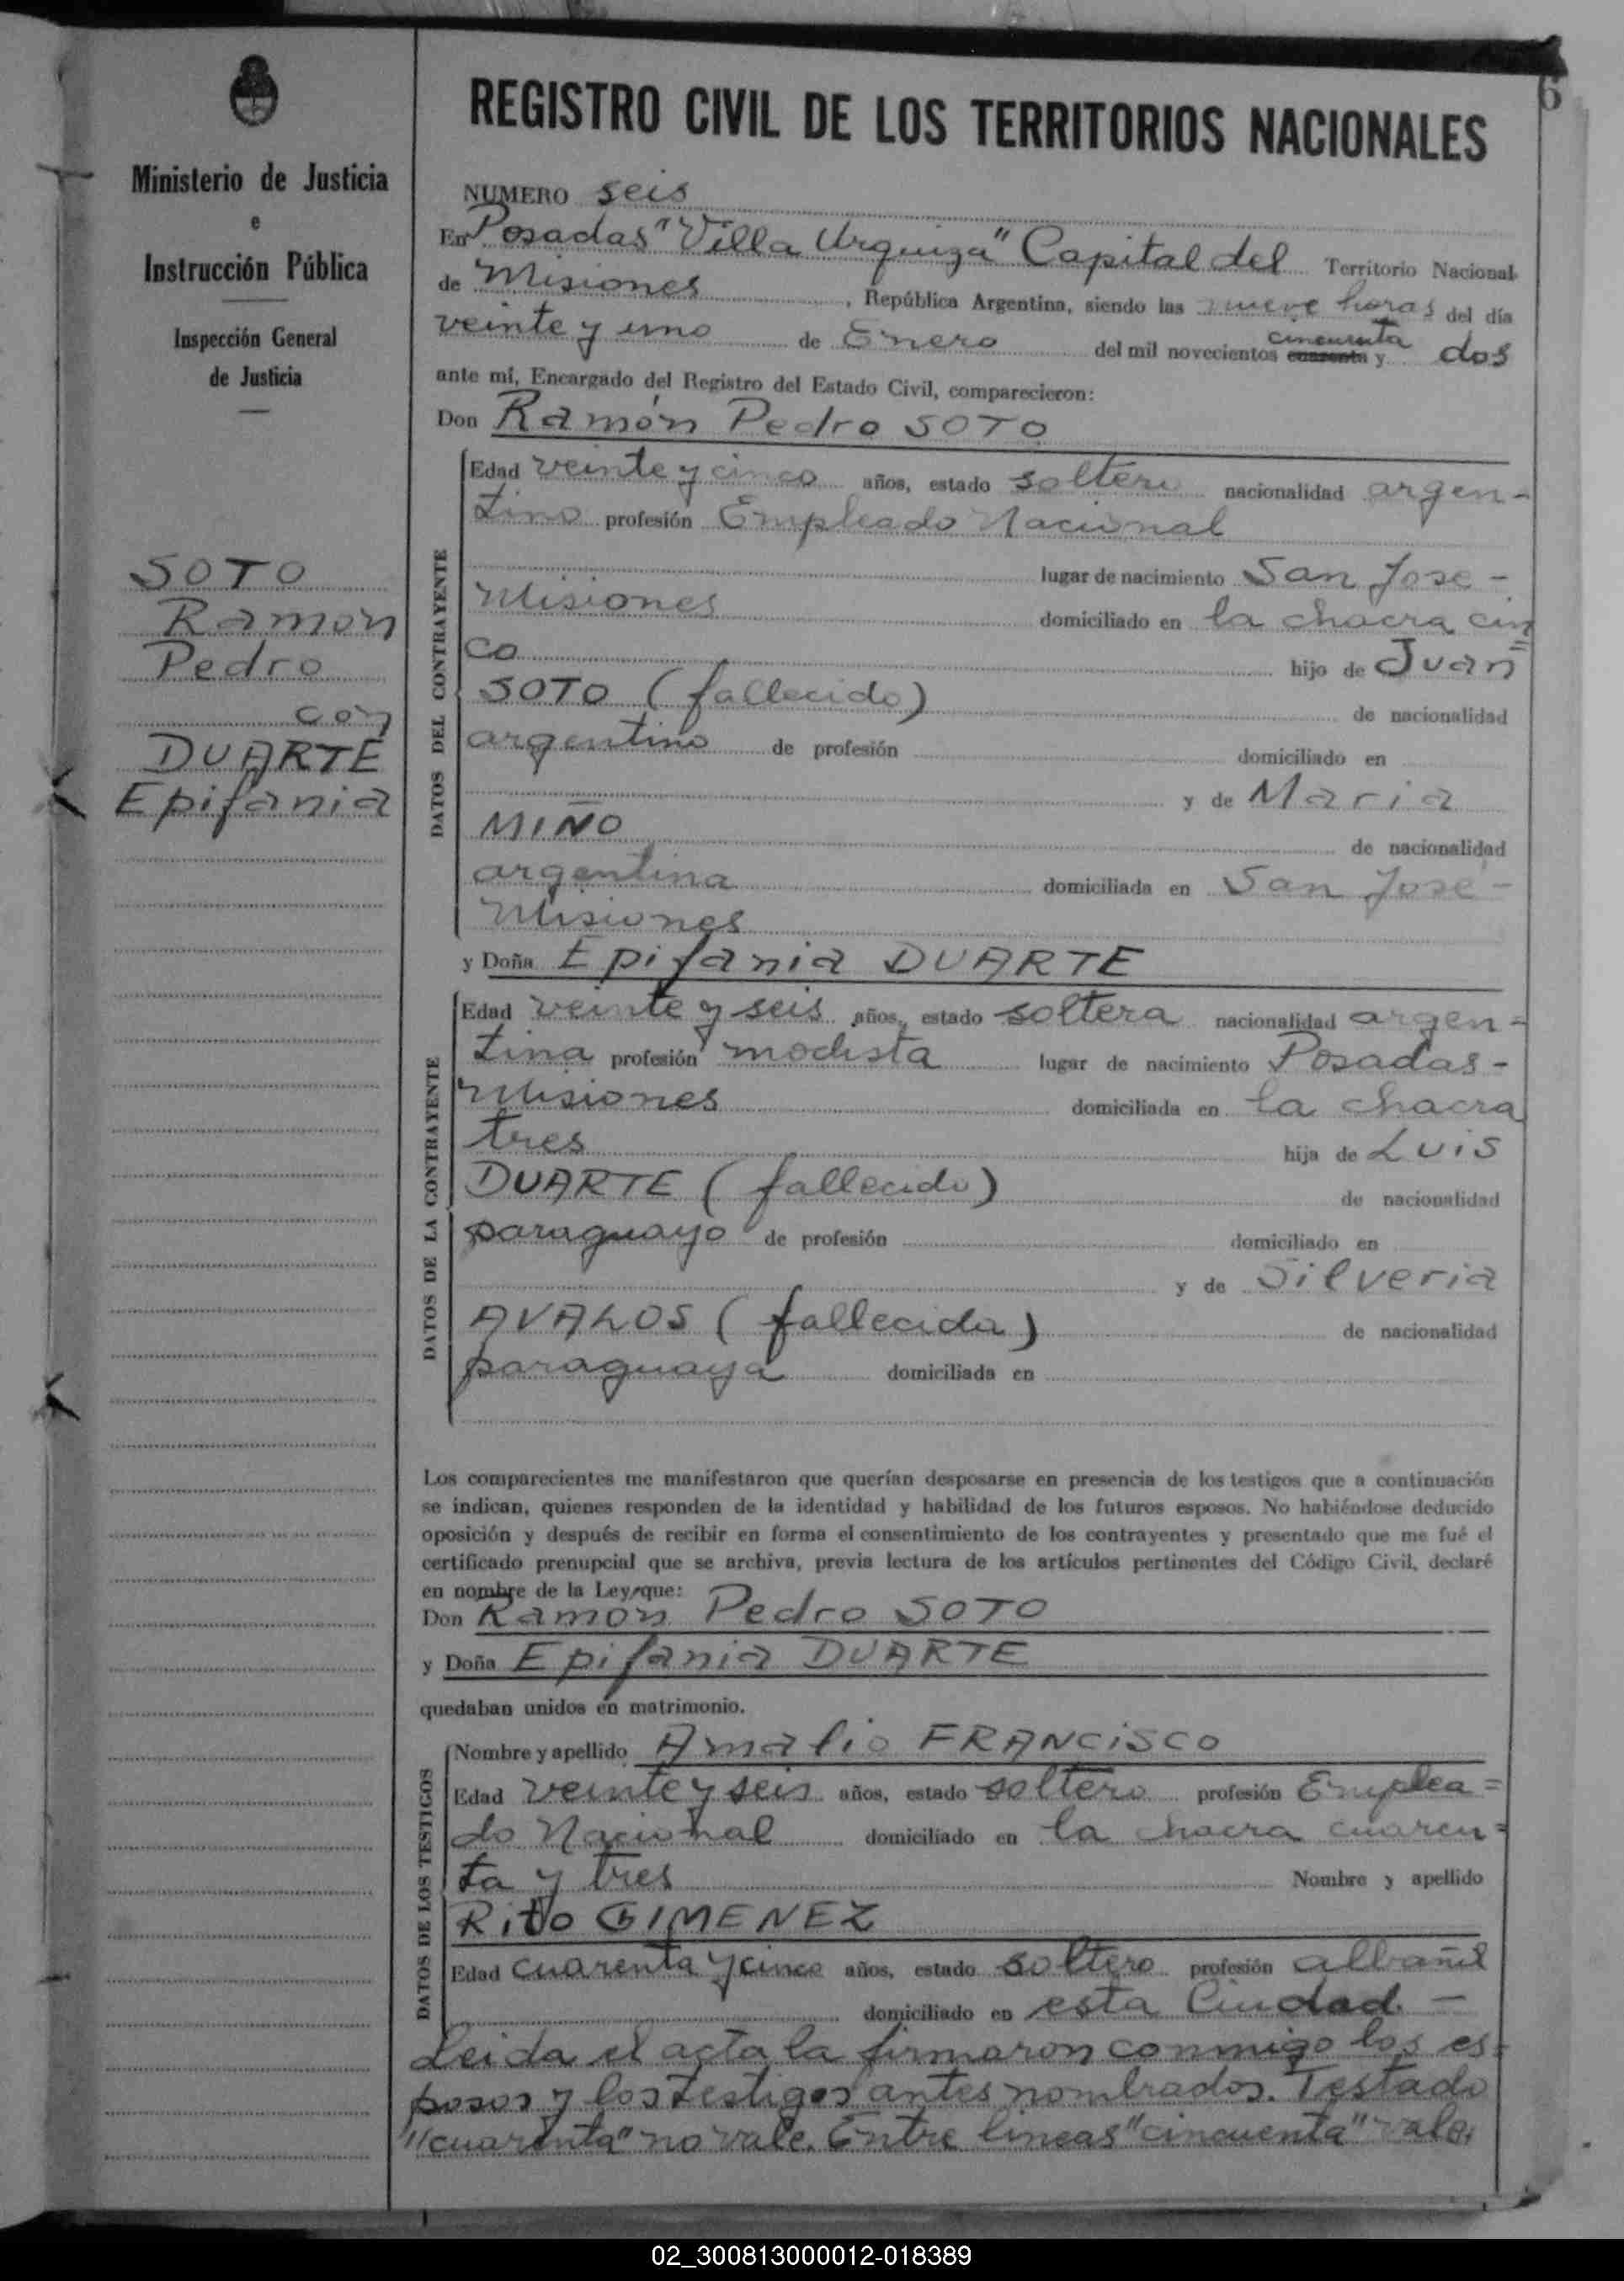 6
REGISTRO CIVIL DE LOS TERRITORIOS NACIONALES
Ministerio de Justicia
e
Instrucción Pública
Inspección General
de Justicia
SOTO
Ramon
Pedro
con
DUARTE
Epifania
NUMERO seis
En Posadas "Villa Urquiza" Capital del Territorio Nacional
de Misiones, República Argentina, siendo las nueve horas del día
veinte y uno de Enero del mil novecientos cuarenta y cincuenta dos
ante mí, Encargado del Registro del Estado Civil, comparecieron:
Don Ramón Pedro SOTO
DATOS DEL CONTRAYENTE
Edad veinte y cinco años, estado soltero nacionalidad argen-
tino profesión Empleado Nacional
lugar de nacimiento San Jose -
Misiones domiciliado en la chacra cin=
co hijo de Juan
SOTO (fallecido) de nacionalidad
argentino de profesión domiciliado en
y de Maria
MIÑO de nacionalidad
argentina domiciliada en San Jose -
Misiones
y Doña Epifania DUARTE
DATOS DE LA CONTRAYENTE
Edad veinte y seis años, estado soltera nacionalidad argen-
tina profesión modista lugar de nacimiento Posadas -
Misiones domiciliada en la chacra
tres hija de Luis
DUARTE (fallecido) de nacionalidad
paraguayo de profesión domiciliado en
y de Silveria
AVALOS (fallecida) de nacionalidad
paraguaya domiciliada en
Los comparecientes me manifestaron que querían desposarse en presencia de los testigos que a continuación
se indican, quienes responden de la identidad y habilidad de los futuros esposos. No habiéndose deducido
oposición y después de recibir en forma el consentimiento de los contrayentes y presentado que me fué el
certificado prenupcial que se archiva, previa lectura de los artículos pertinentes del Código Civil, declaré
en nombre de la Ley que:
Don Ramon Pedro SOTO
y Doña Epifania DUARTE
quedaban unidos en matrimonio.
DATOS DE LOS TESTIGOS
Nombre y apellido Amalio FRANCISCO
Edad veinte y seis años, estado soltero profesión Emplea=
do Nacional domiciliado en la chacra cuaren=
ta y tres Nombre y apellido
Rito GIMENEZ
Edad cuarenta y cinco años, estado soltero profesión albañil
domiciliado en esta Ciudad. -
Leida el acta la firmaron conmigo los es=
posos y los testigos antes nombrados. Testado
"cuarenta" no vale. Entre lineas "cincuenta" vale.
02_300813000012-018389